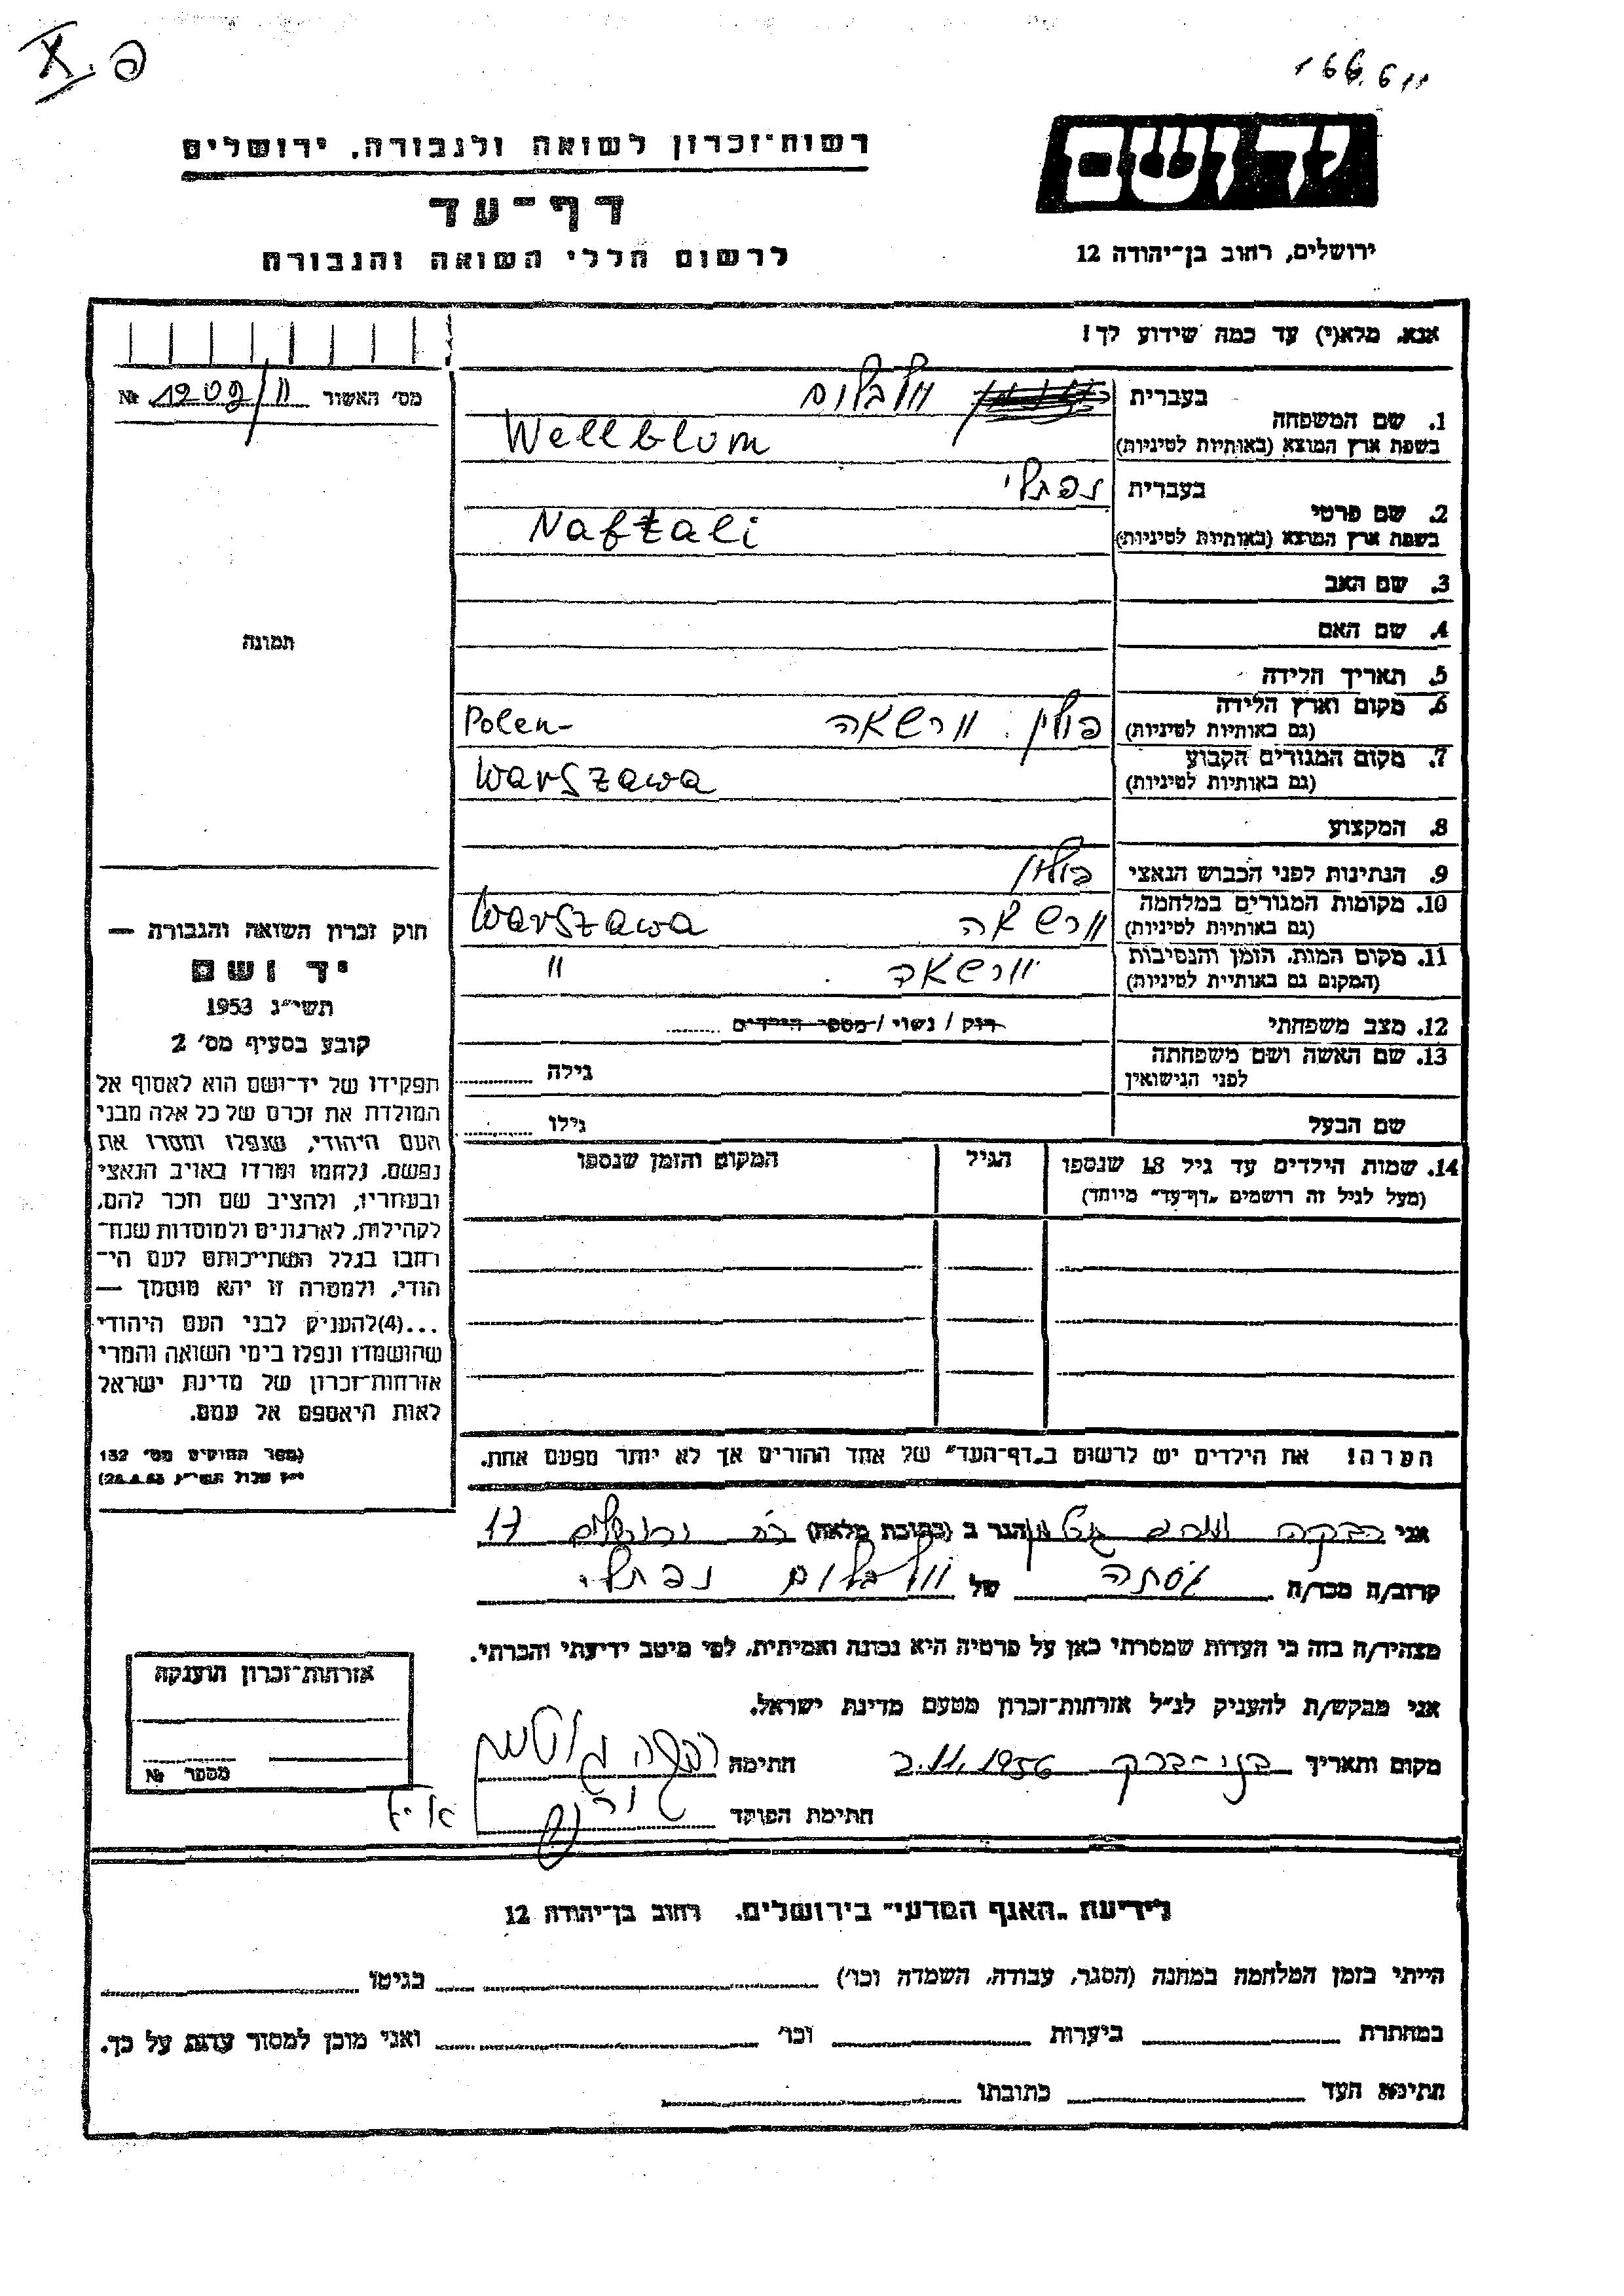 X. פ
166.611
רשות־זכרון לשואה ולגבורה, ירושלים
יד ושם
דף־עד
לרשום חללי השואה והגבורה
ירושלים, רחוב בן־יהודה 12
אנא, מלא(י) עד כמה שידוע לך!
מס' האשור 1202/11 №
1. שם המשפחה
בעברית וולבלום
בשפת ארץ המוצא (באותיות לטיניות) Wellblum
2. שם פרטי
בעברית נפתלי
בשפת ארץ המוצא (באותיות לטיניות) Naftali
3. שם האב
4. שם האם
תמונה
5. תאריך הלידה
6. מקום וארץ הלידה
(גם באותיות לטיניות) פולין. וורשאה Polen-
7. מקום המגורים הקבוע
(גם באותיות לטיניות) Warszawa
8. המקצוע
9. הנתינות לפני הכבוש הנאצי פולין
10. מקומות המגורים במלחמה
(גם באותיות לטיניות) וורשאה Warszawa
11. מקום המות, הזמן והנסיבות
(המקום גם באותיות לטיניות) וורשאה "
12. מצב משפחתי רוק / נשוי / מספר הילדים
13. שם האשה ושם משפחתה
לפני הנישואין גילה
שם הבעל גילו
14. שמות הילדים עד גיל 18 שנספו
(מעל לגיל זה רושמים „דף־עד" מיוחד)
הגיל
המקום והזמן שנספו
הערה! את הילדים יש לרשום ב„דף־העד" של אחד ההורים אך לא יותר מפעם אחת.
חוק זכרון השואה והגבורה —
יד ושם
תשי"ג 1953
קובע בסעיף מס' 2
תפקידו של יד־ושם הוא לאסוף אל
המולדת את זכרם של כל אלה מבני
העם היהודי, שנפלו ומסרו את
נפשם, נלחמו ומרדו באויב הנאצי
ובעוזריו, ולהציב שם וזכר להם,
לקהילות, לארגונים ולמוסדות שנח־
רבו בגלל השתייכותם לעם הי־
הודי, ולמטרה זו יהא מוסמך —
...(4)להעניק לבני העם היהודי
שהושמדו ונפלו בימי השואה והמרי
אזרחות־זכרון של מדינת ישראל
לאות היאספם אל עמם.
(ספר החוקים מס' 132
אני רבקה הגר ב (כתובת מלאה) ירושלים 17
קרוב/ה מכר/ה של וולבלום נפתלי
מצהיר/ה בזה כי העדות שמסרתי כאן על פרטיה היא נכונה ואמיתית, לפי מיטב ידיעתי והכרתי.
אני מבקש/ת להעניק לנ"ל אזרחות־זכרון מטעם מדינת ישראל.
מקום ותאריך בני־ברק 2.11.1956 חתימה רבקה
חתימת הפוקד
אזרחות־זכרון הוענקה
מספר №
לידיעת „האגף המדעי" בירושלים, רחוב בן־יהודה 12
הייתי בזמן המלחמה במחנה (הסגר, עבודה, השמדה וכו') בגיטו
במחתרת ביערות וכו' ואני מוכן למסור עדות על כך.
חתימת העד כתובתו